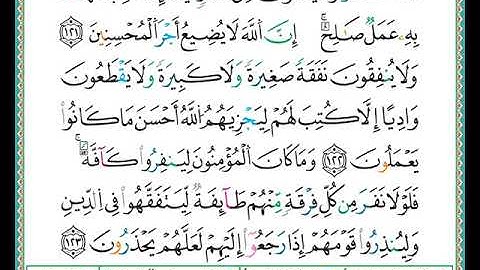 بِهِۦ عَمَلٌ صَٰلِحٌ ۚ إِنَّ ٱللَّهَ لَا يُضِيعُ أَجْرَ ٱلْمُحْسِنِينَ ١٢١
وَلَا يُنفِقُونَ نَفَقَةً صَغِيرَةً وَلَا كَبِيرَةً وَلَا يَقْطَعُونَ
وَادِيًا إِلَّا كُتِبَ لَهُمْ لِيَجْزِيَهُمُ ٱللَّهُ أَحْسَنَ مَا كَانُوا۟
يَعْمَلُونَ ١٢٢ وَمَا كَانَ ٱلْمُؤْمِنُونَ لِيَنفِرُوا۟ كَآفَّةً ۚ
فَلَوْلَا نَفَرَ مِن كُلِّ فِرْقَةٍ مِّنْهُمْ طَآئِفَةٌ لِّيَتَفَقَّهُوا۟ فِى ٱلدِّينِ
وَلِيُنذِرُوا۟ قَوْمَهُمْ إِذَا رَجَعُوٓا۟ إِلَيْهِمْ لَعَلَّهُمْ يَحْذَرُونَ ١٢٣